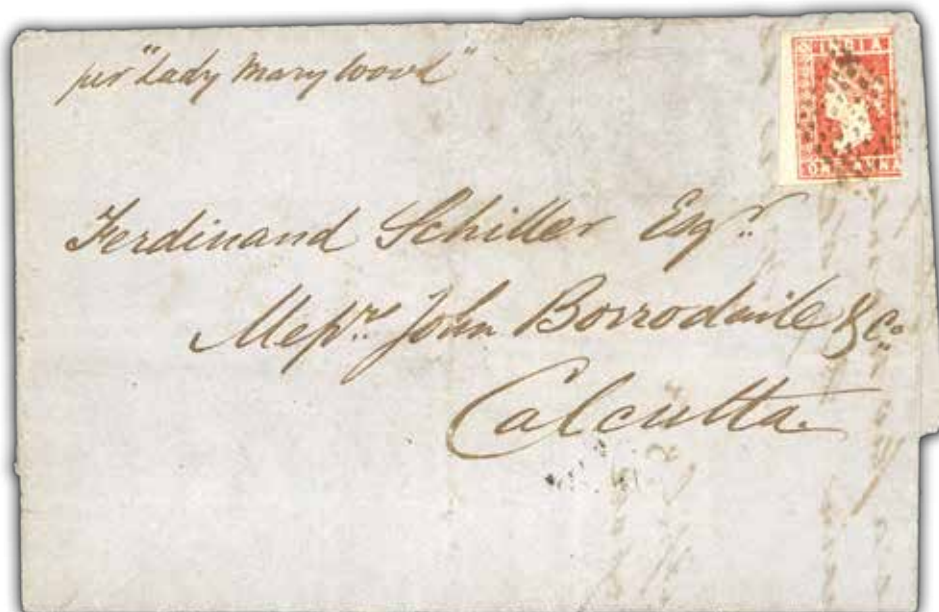 per "Lady Mary Wood"
INDIA
ONE ANNA
Ferdinand Schiller Esqr.
Messrs. John Borrodaile & Co.
Calcutta